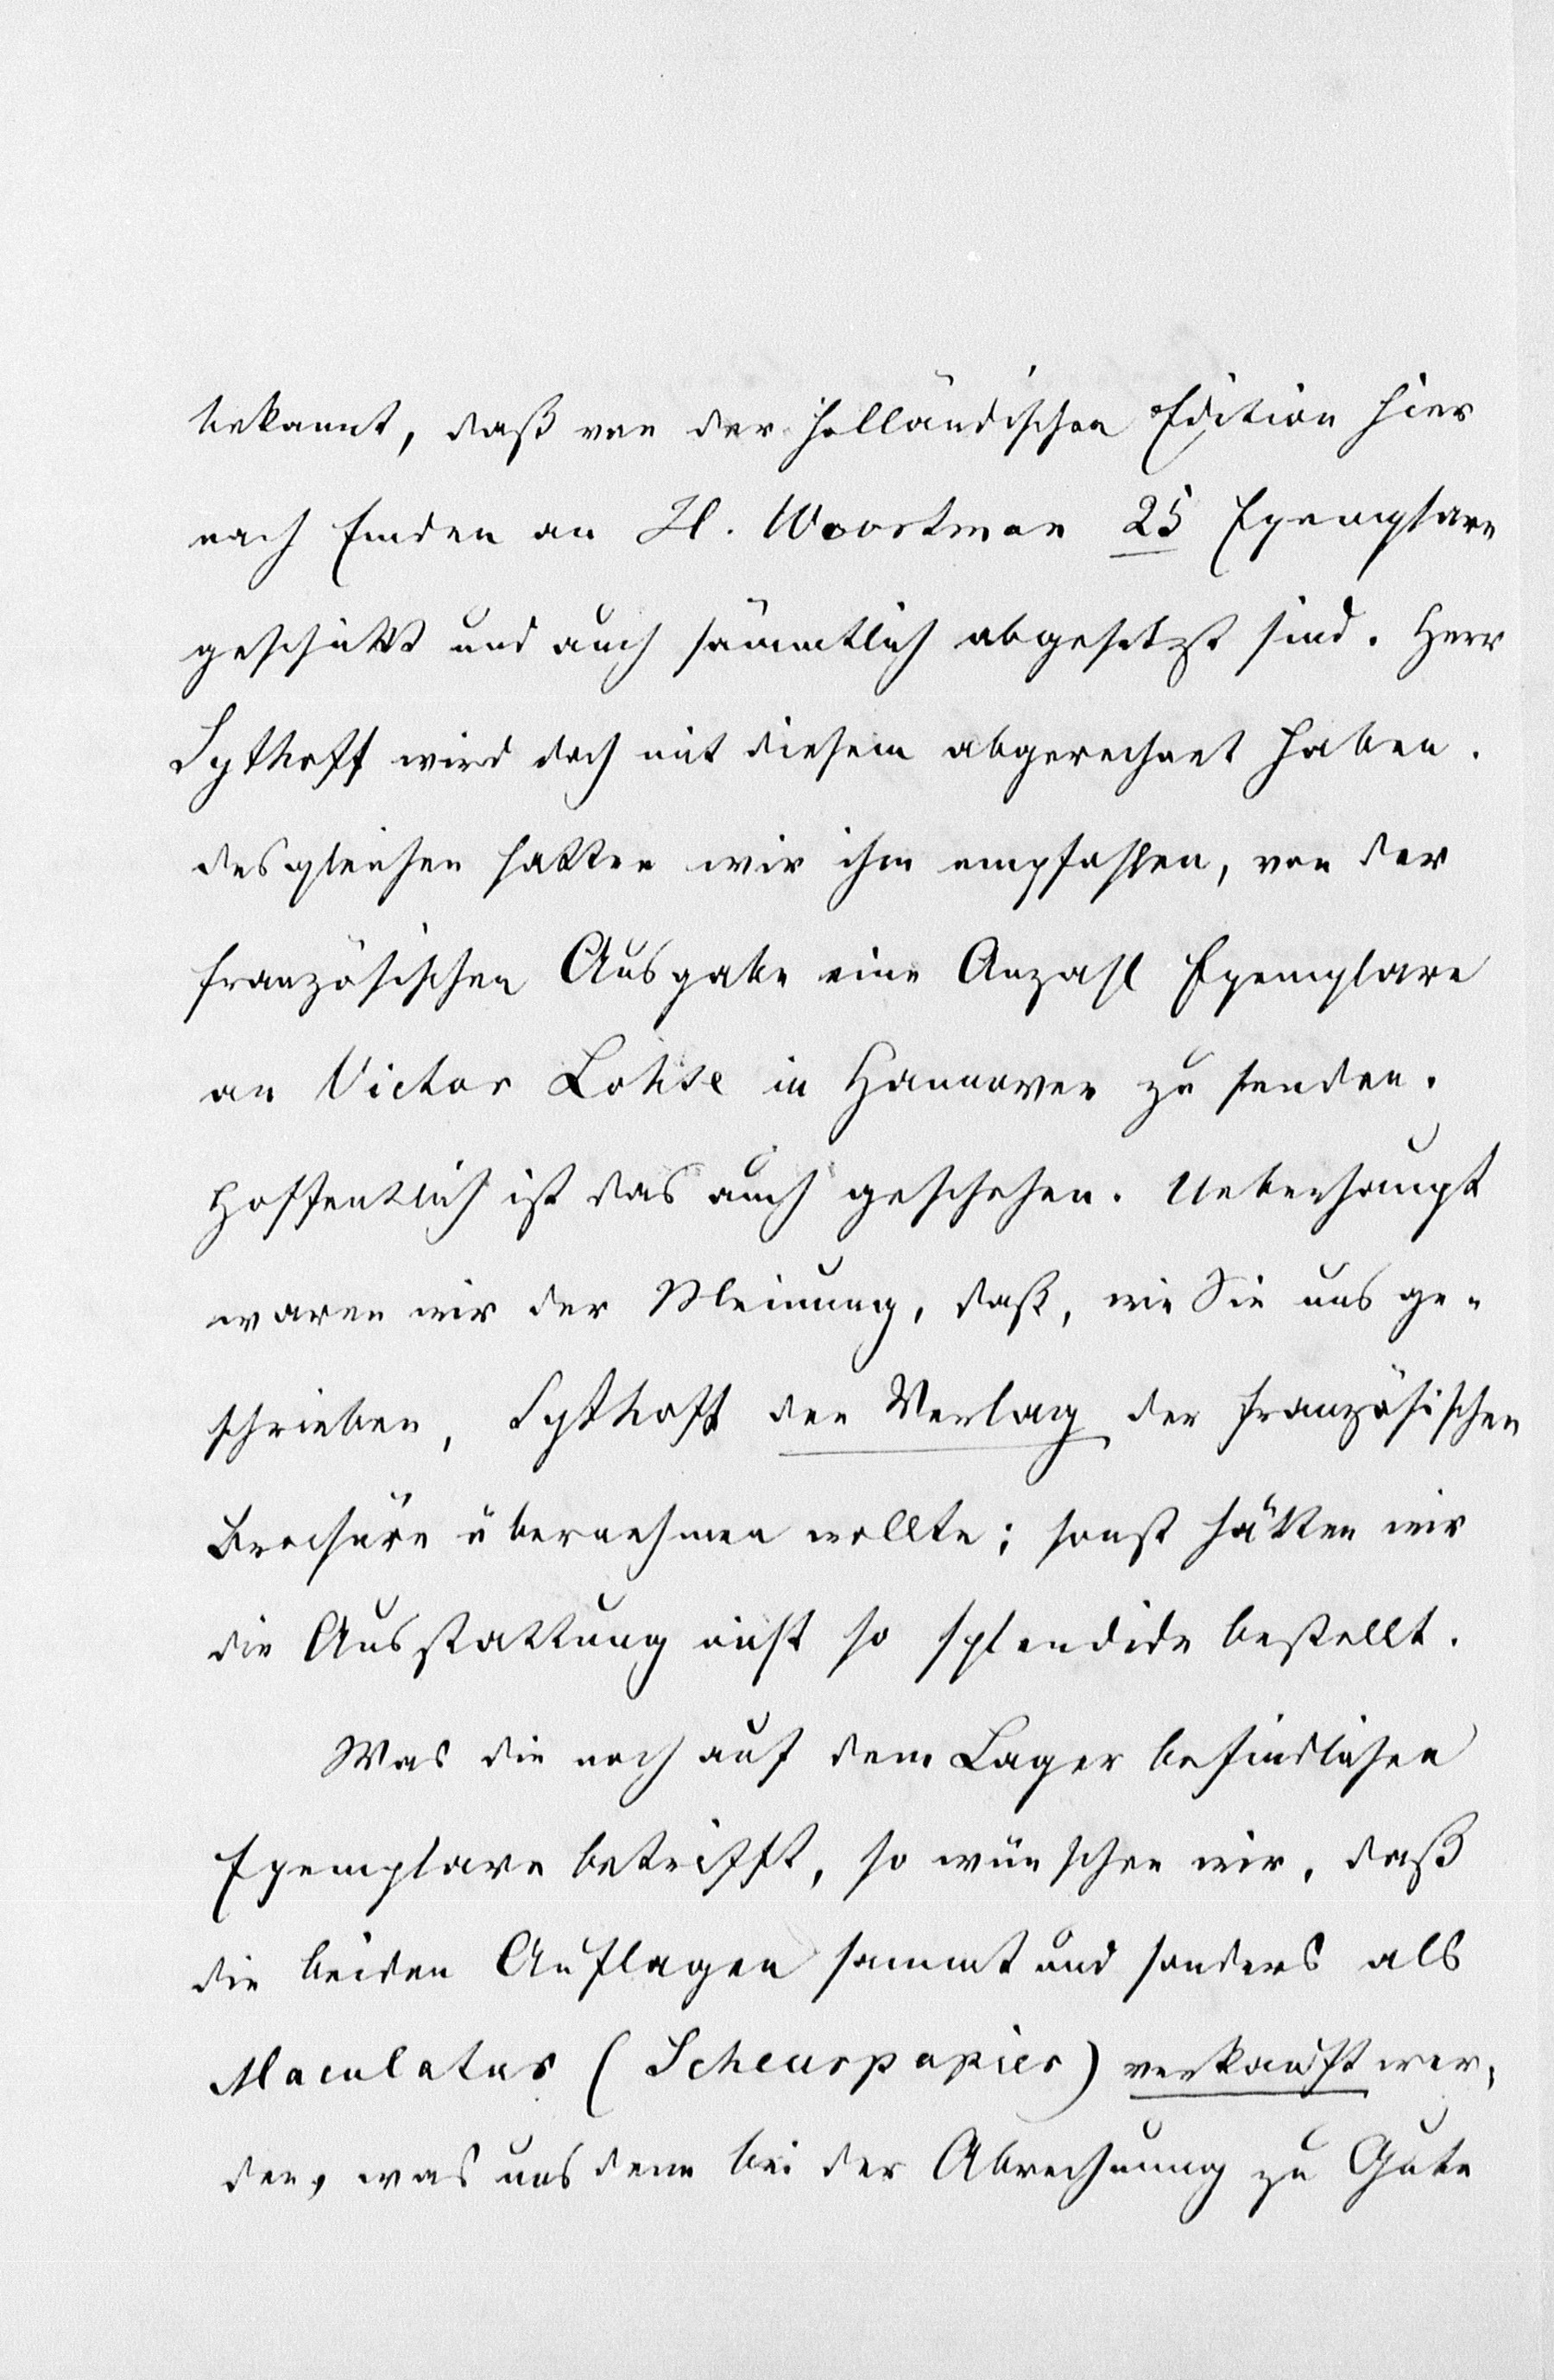 bekannt, daß von der holländischen Edition hier
nach Emden an H. Woortman 25 Exemplare
geschickt und auch sämmtlich abgesetzt sind. Herr
Sythoff wird doch mit diesem abgerechnet haben.
desgleichen hatten wir ihm empfohlen, von der
französischen Ausgabe eine Anzahl Exemplare
an Victor Lohse in Hannover zu senden.
Hoffentlich ist das auch geschehen. Ueberhaupt
waren wir der Meinung, daß, wie Sie uns ge-
schrieben, Sythoff den Verlag der französischen
Brochüre übernehmen wollte; sonst hätten wir
die Ausstattung nicht so splendide bestellt.
Was die noch auf dem Lager befindlichen
Exemplare betrifft, so wünschen wir, daß
die beiden Auflagen sammt und sonders als
Maculatur (Scheurpapier) verkauft wer-
den, was uns denn bei der Abrechnung zu Gute